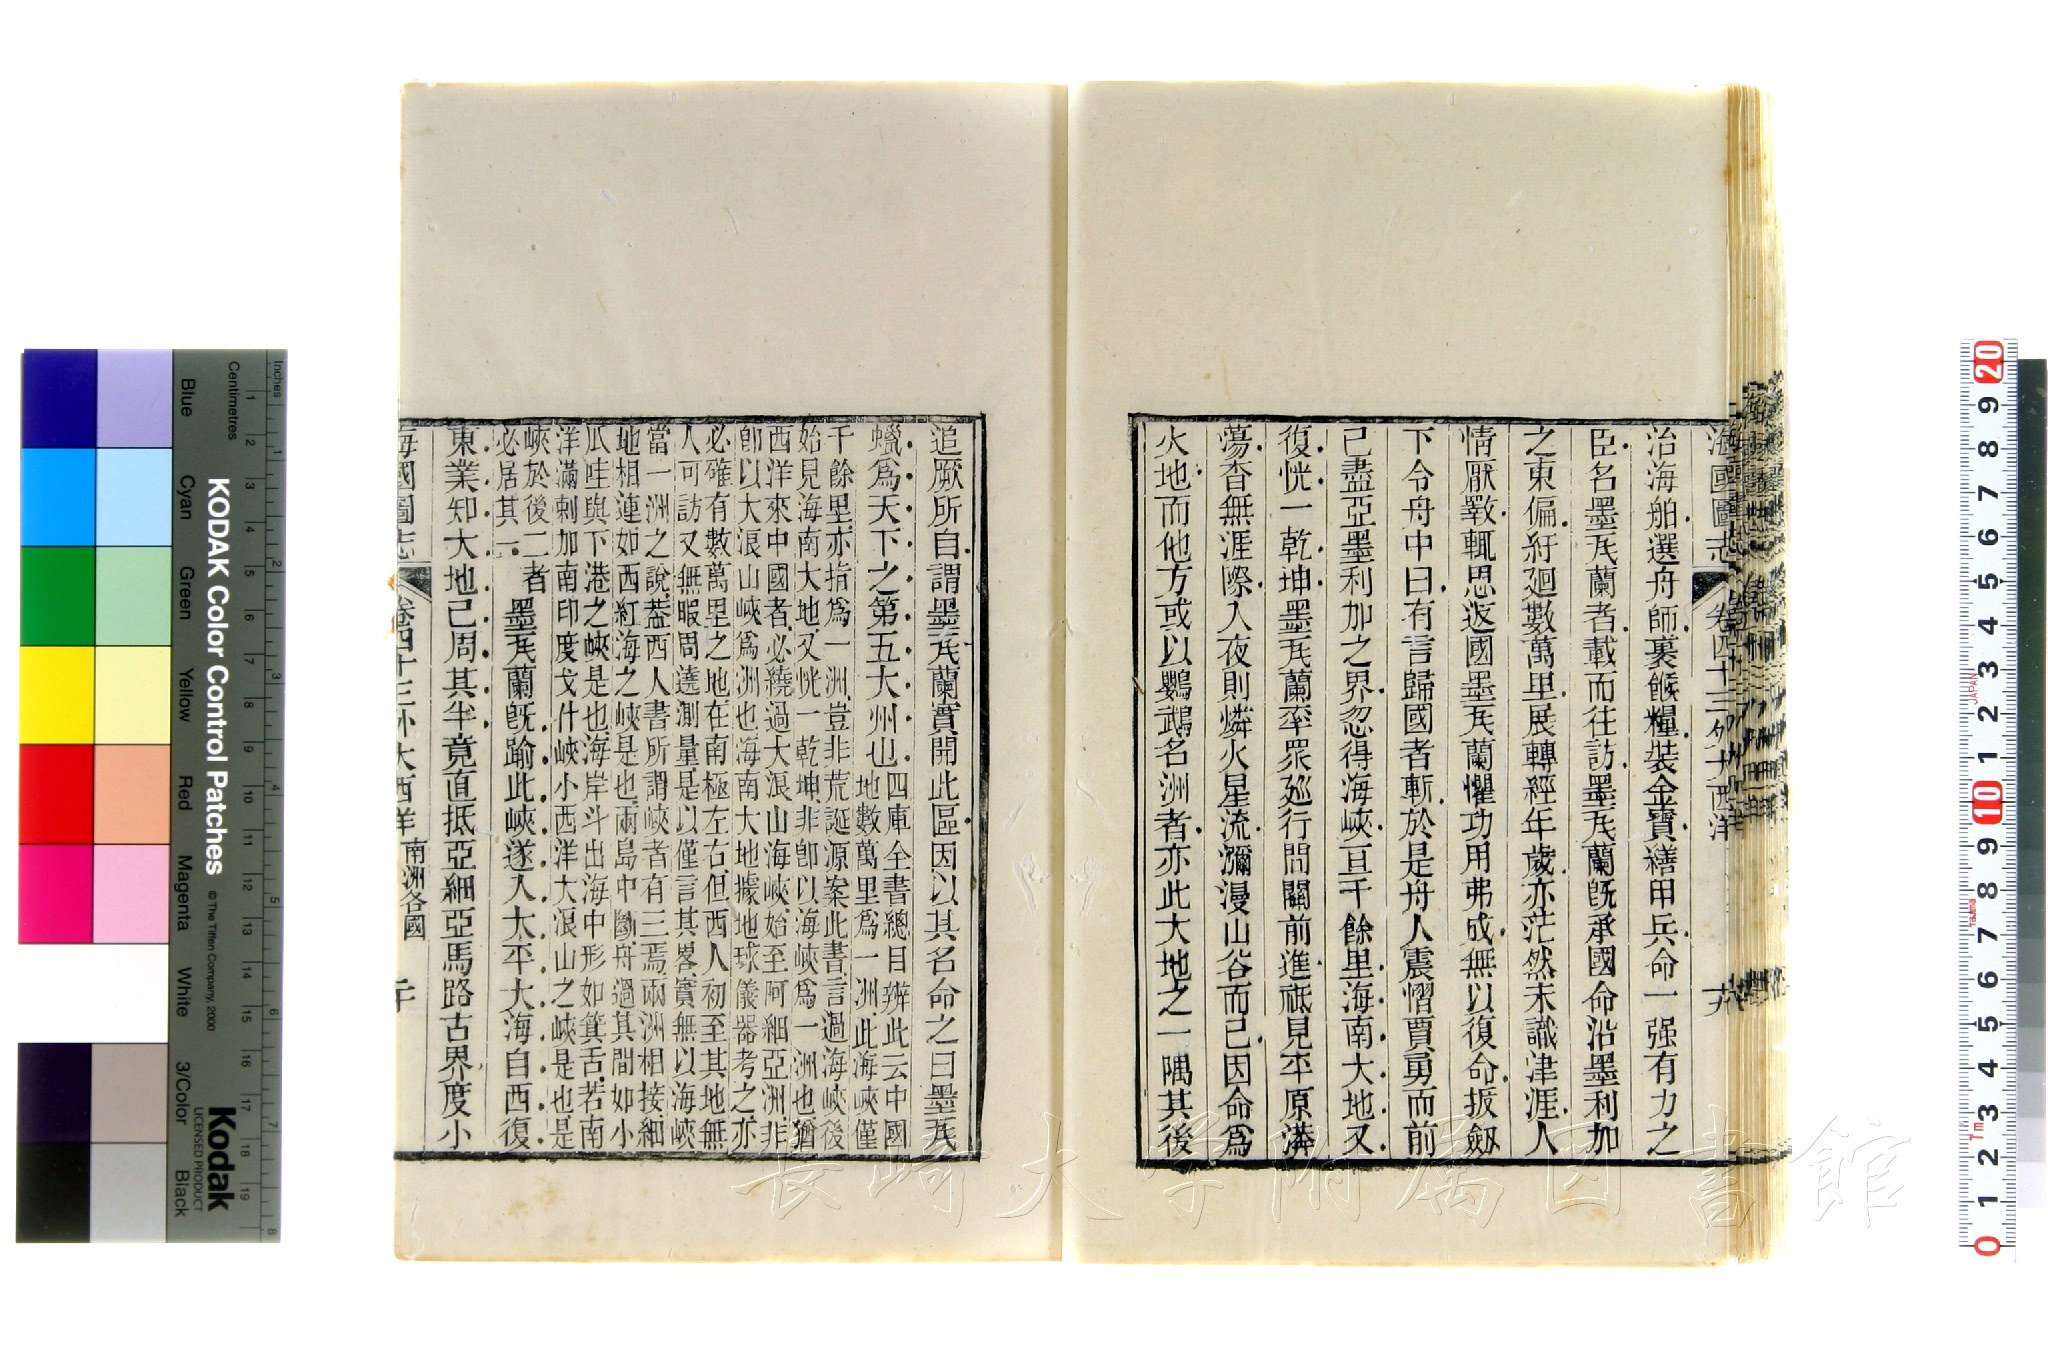 海國圖志 卷四十三外大西洋 十九
治海舶選舟師裹餱糧裝金寶繕甲兵命一强有力之
臣名墨瓦蘭者載而往訪墨瓦蘭旣承國命沿墨利加
之東偏紆廻數萬里展轉經年歲亦茫然未識津涯人
情厭斁輒思返國墨瓦蘭懼功用弗成無以復命拔劔
下令舟中曰有言歸國者斬於是舟人震慴賈勇而前
已盡亞墨利加之界忽得海峽亘千餘里海南大地又
復恍一乾坤墨瓦蘭率眾廵行間關前進祗見平原漭
蕩杳無涯際入夜則燐火星流瀰漫山谷而已因命爲
火地而他方或以鸚鵡名洲者亦此大地之一隅其後
追厥所自謂墨瓦蘭實開此區因以其名命之曰墨瓦
蠟爲天下之第五大州也
四庫全書總目辨此云中國
地數萬里爲一洲此海峽僅
千餘里亦指爲一洲豈非荒誕源案此書言過海峽後
始見海南大地又恍一乾坤非卽以海峽爲一洲也猶
西洋來中國者必繞過大浪山海峽始至阿細亞洲非
卽以大浪山峽爲洲也海南大地據地球儀器考之亦
必確有數萬里之地在南極左右但西人初至其地無
人可訪又無暇周遶測量是以僅言其畧實無以海峽
當一洲之說葢西人書所謂峽者有三焉兩洲相接細
地相連如西紅海之峽是也兩島中斷舟過其間如小
瓜哇與下港之峽是也海岸斗出海中形如箕舌若南
洋滿剌加南印度戈什峽小西洋大浪山之峽是也是
峽於後二者
必居其一
墨瓦蘭旣踰此峽遂入太平大海自西復
東業知大地已周其半竟直抵亞細亞馬路古界度小
海國圖志 卷四十三外大西洋 南洲各國 二十
長崎大学附属図書館
KODAK Color Control Patches
© The Tiffen Company, 2000
Kodak
LICENSED PRODUCT
Inches
Centimetres
Blue Cyan Green Yellow Red Magenta White 3/Color Black
1 2 3 4 5 6 7 8
1 2 3 4 5 6 7 8 9 10 11 12 13 14 15 16 17 18 19
20 9 8 7 6 5 4 3 2 1 10 9 8 7 6 5 4 3 2 1 0
JAPAN